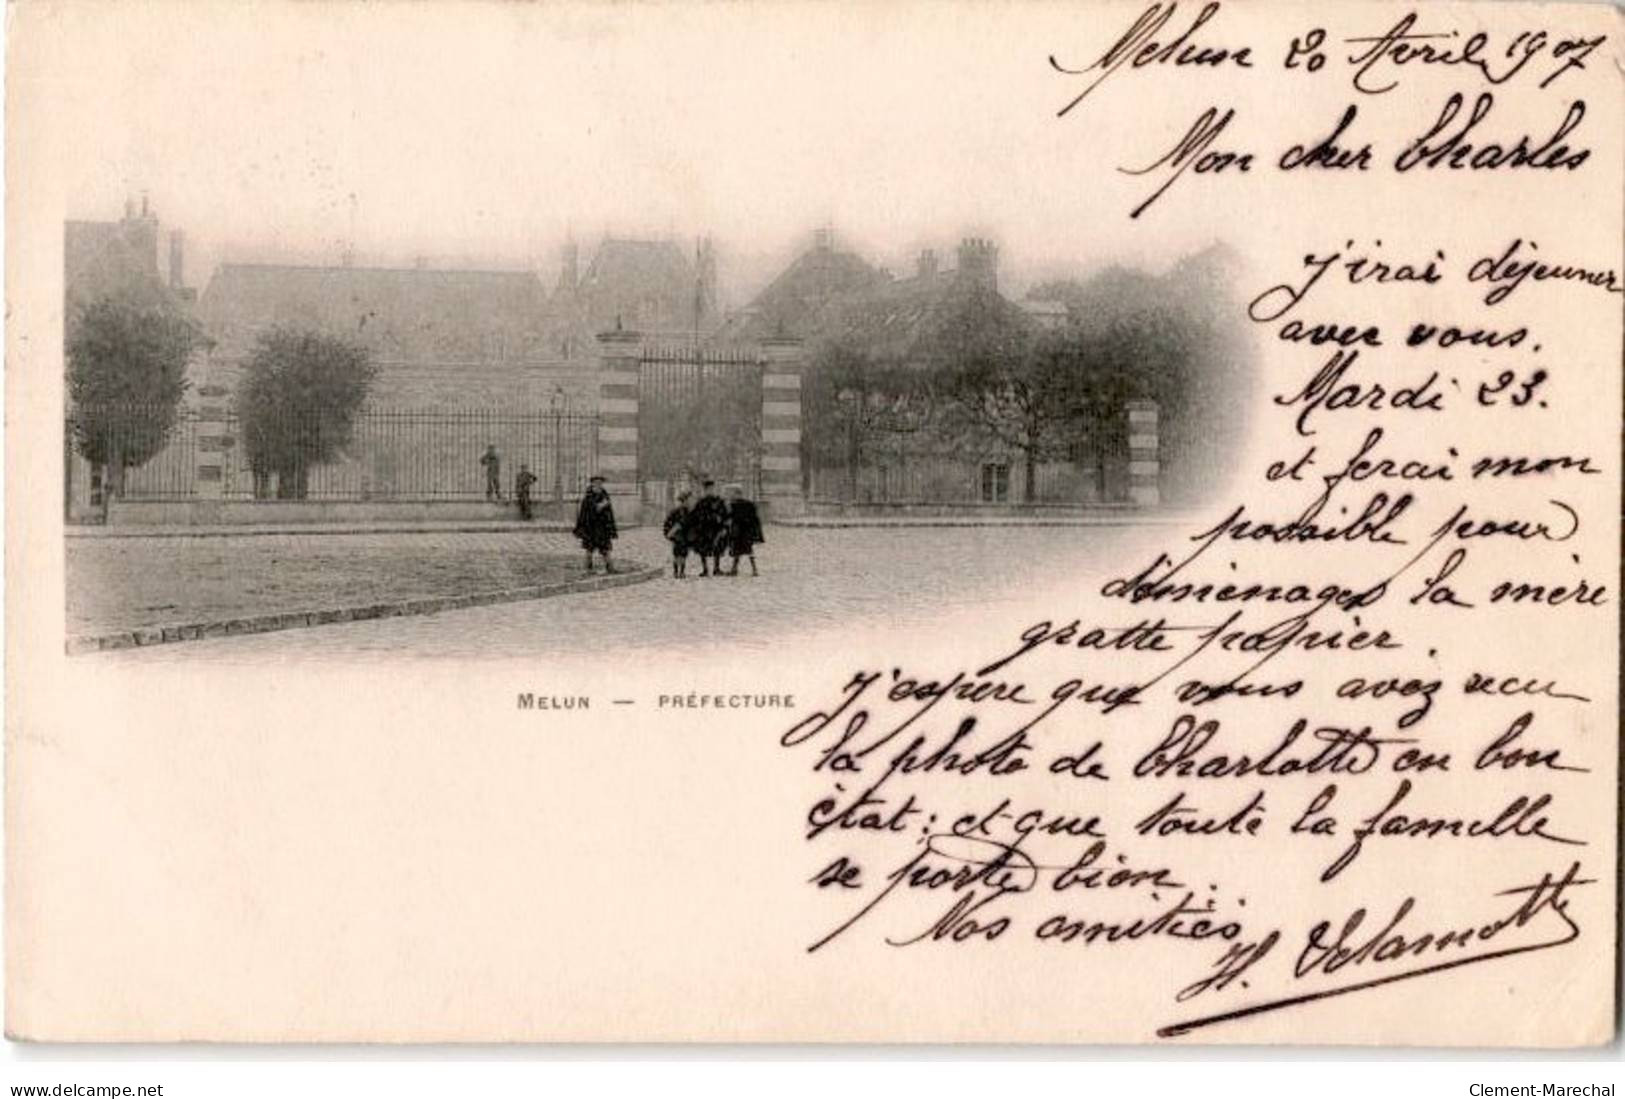 Melun 20 Avril 1907
Mon cher Charles
J'irai déjeuner
avec vous.
Mardi 23.
et ferai mon
possible pour
déménager la mère
gratte papier.
J'espère que vous avez recu
la photo de Charlotte en bon
état; et que toute la famille
se porte bien.
Nos amitiés
H. Delamotte
MELUN — PRÉFECTURE
www.delcampe.net
Clement-Marechal